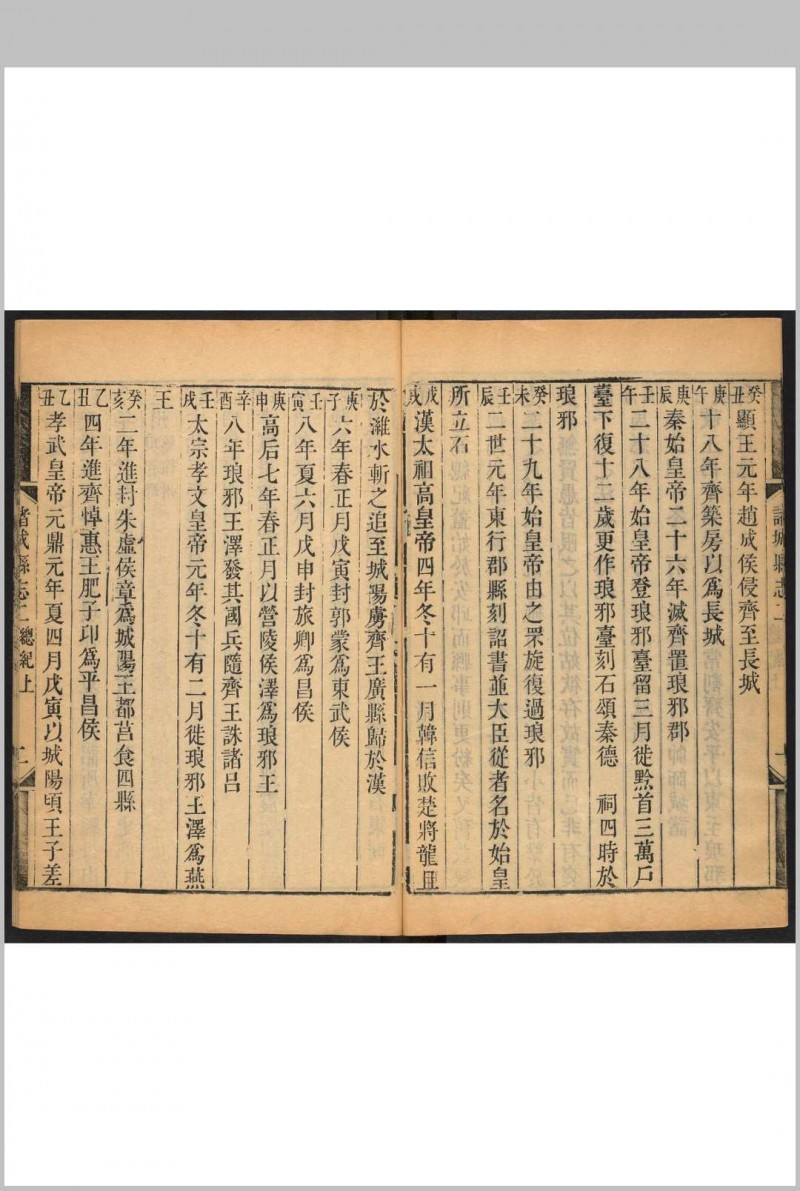 癸丑顯王元年趙成侯侵齊至長城
庚午十八年齊築房以爲長城
庚辰秦始皇帝二十六年滅齊置琅邪郡
壬午二十八年始皇帝登琅邪臺留三月徙黔首三萬戶
臺下復十二歲更作琅邪臺刻石頌秦德 祠四時於
琅邪
癸未二十九年始皇帝由之罘旋復過琅邪
壬辰二世元年東行郡縣刻詔書並大臣從者名於始皇
所立石
戊戌漢太祖高皇帝四年冬十有一月韓信敗楚將龍且
於濰水斬之追至城陽虜齊王廣縣歸於漢
庚子六年春正月戊寅封郭蒙爲東武侯
壬寅八年夏六月戊申封旅卿爲昌侯
庚申高后七年春正月以營陵侯澤爲琅邪王
辛酉八年琅邪王澤發其國兵隨齊王誅諸呂
壬戌太宗孝文皇帝元年冬十有二月徙琅邪王澤爲燕
王
癸亥二年進封朱虛侯章爲城陽王都莒食四縣
乙丑四年進齊悼惠王肥子卬爲平昌侯
乙丑孝武皇帝元鼎元年夏四月戊寅以城陽頃王子差
諸城縣志二 總紀上 二